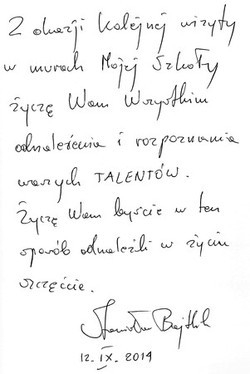 Z okazji kolejnej wizyty
w murach Mojej Szkoły
życzę Wam Wszystkim
odnalezienia i rozpoznania
waszych TALENTÓW.
Życzę Wam byście w ten
sposób odnaleźli w życiu
szczęście.
Stanisław Bajtlik
12.IX.2014